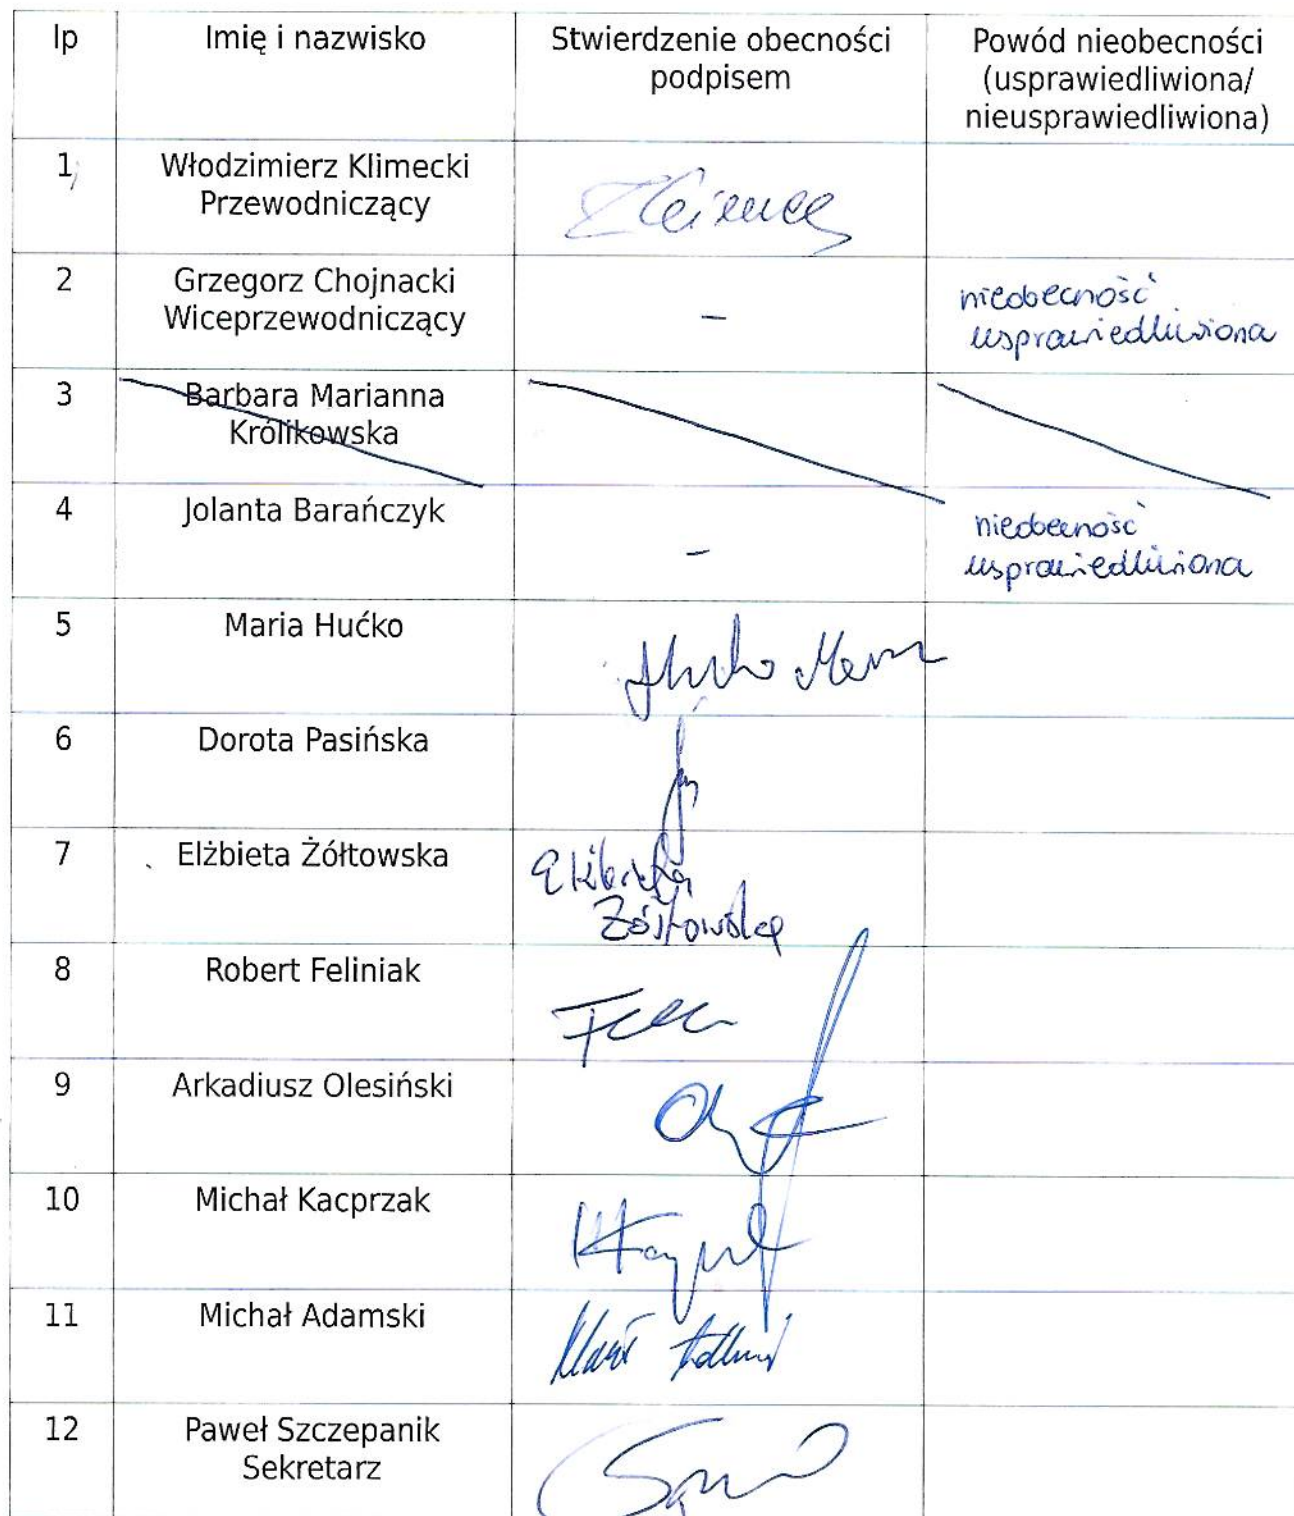 lp
Imię i nazwisko
Stwierdzenie obecności
podpisem
Powód nieobecności
(usprawiedliwiona/
nieusprawiedliwiona)
1
Włodzimierz Klimecki
Przewodniczący
2
Grzegorz Chojnacki
Wiceprzewodniczący
–
nieobecność
usprawiedliwiona
3
Barbara Marianna
Królikowska
4
Jolanta Barańczyk
–
nieobecność
usprawiedliwiona
5
Maria Hućko
6
Dorota Pasińska
7
Elżbieta Żółtowska
Elżbieta
Żółtowska
8
Robert Feliniak
9
Arkadiusz Olesiński
10
Michał Kacprzak
11
Michał Adamski
12
Paweł Szczepanik
Sekretarz